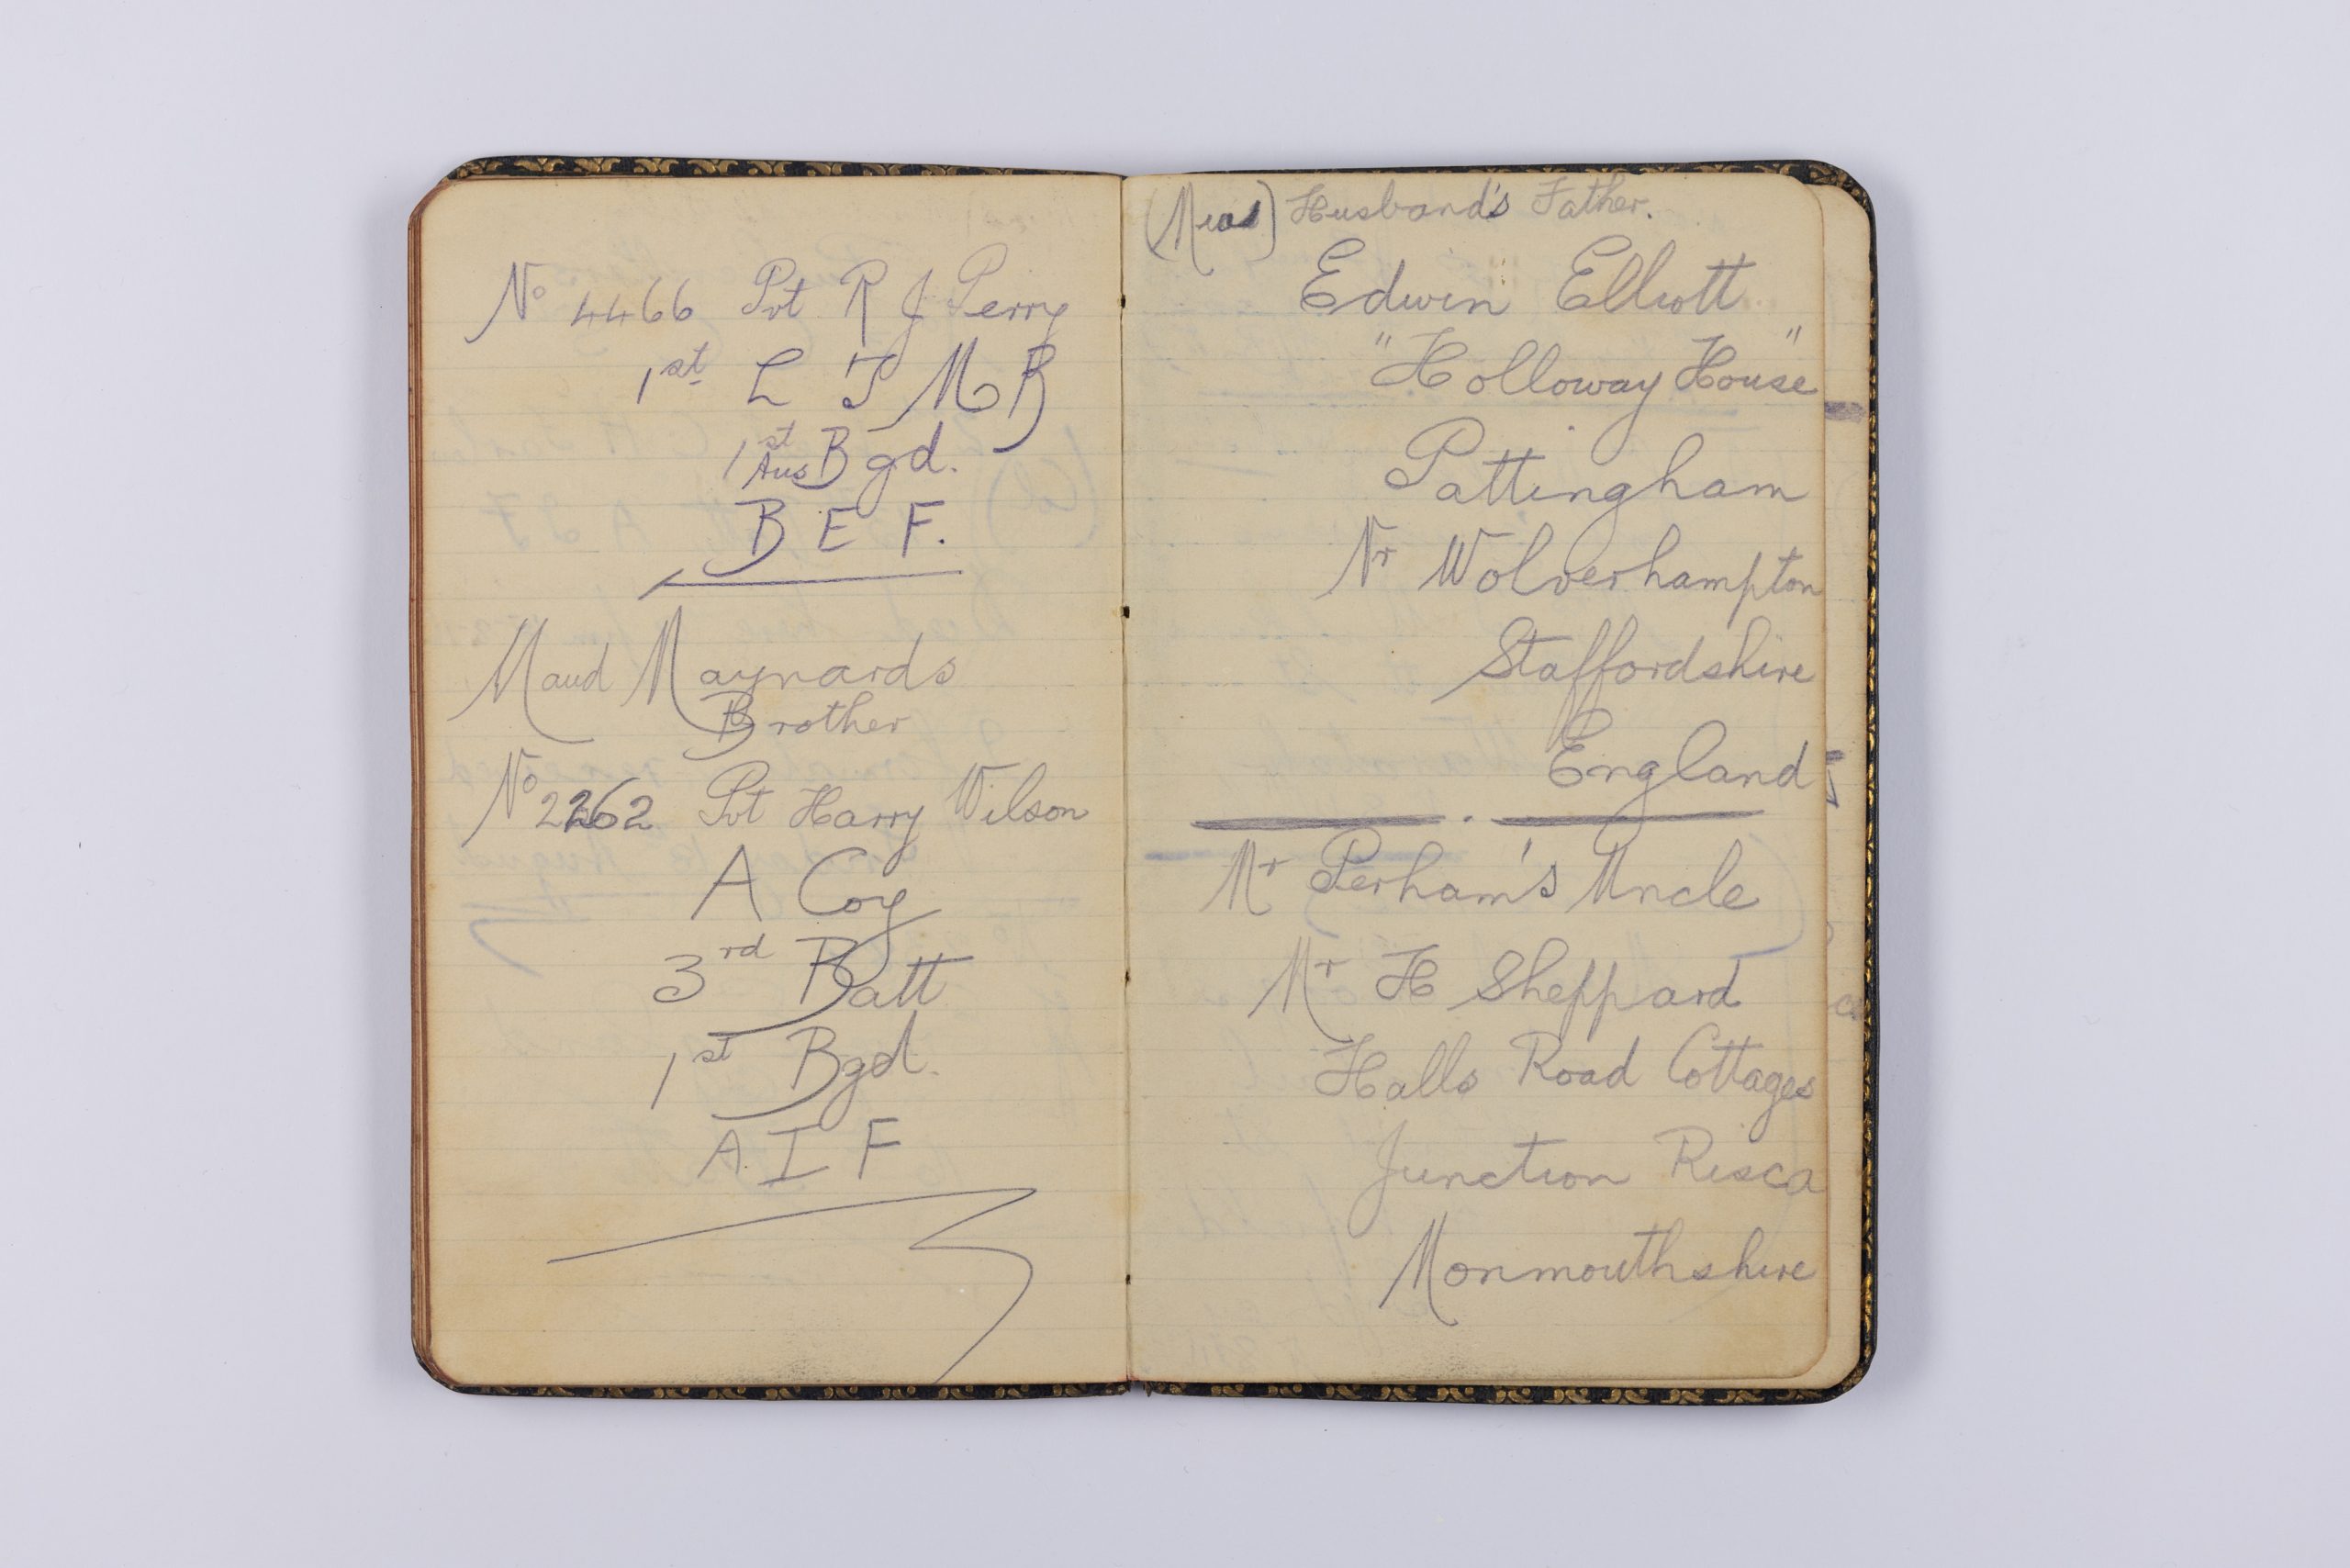 No 4466 Pvt R J Perry
1st L T M B
1st Aus Bgd.
B E F.
Maud Maynards
Brother
No 2262 Pvt Harry Wilson
A Coy
3rd Batt
1st Bgd.
A. I F
(Mias) Husband's Father.
Edwin Elliott
"Holloway House"
Pattingham
Nr Wolverhampton
Staffordshire
England
Mr Perham's Uncle
Mr H Sheppard
Halls Road Cottages
Junction Risca
Monmouthshire